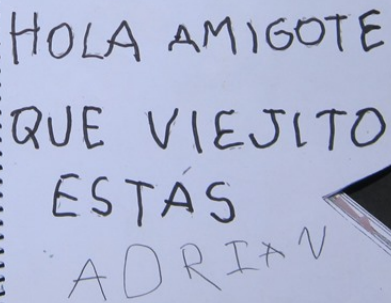 HOLA AMIGOTE
QUE VIEJITO
ESTÁS
ADRIAN